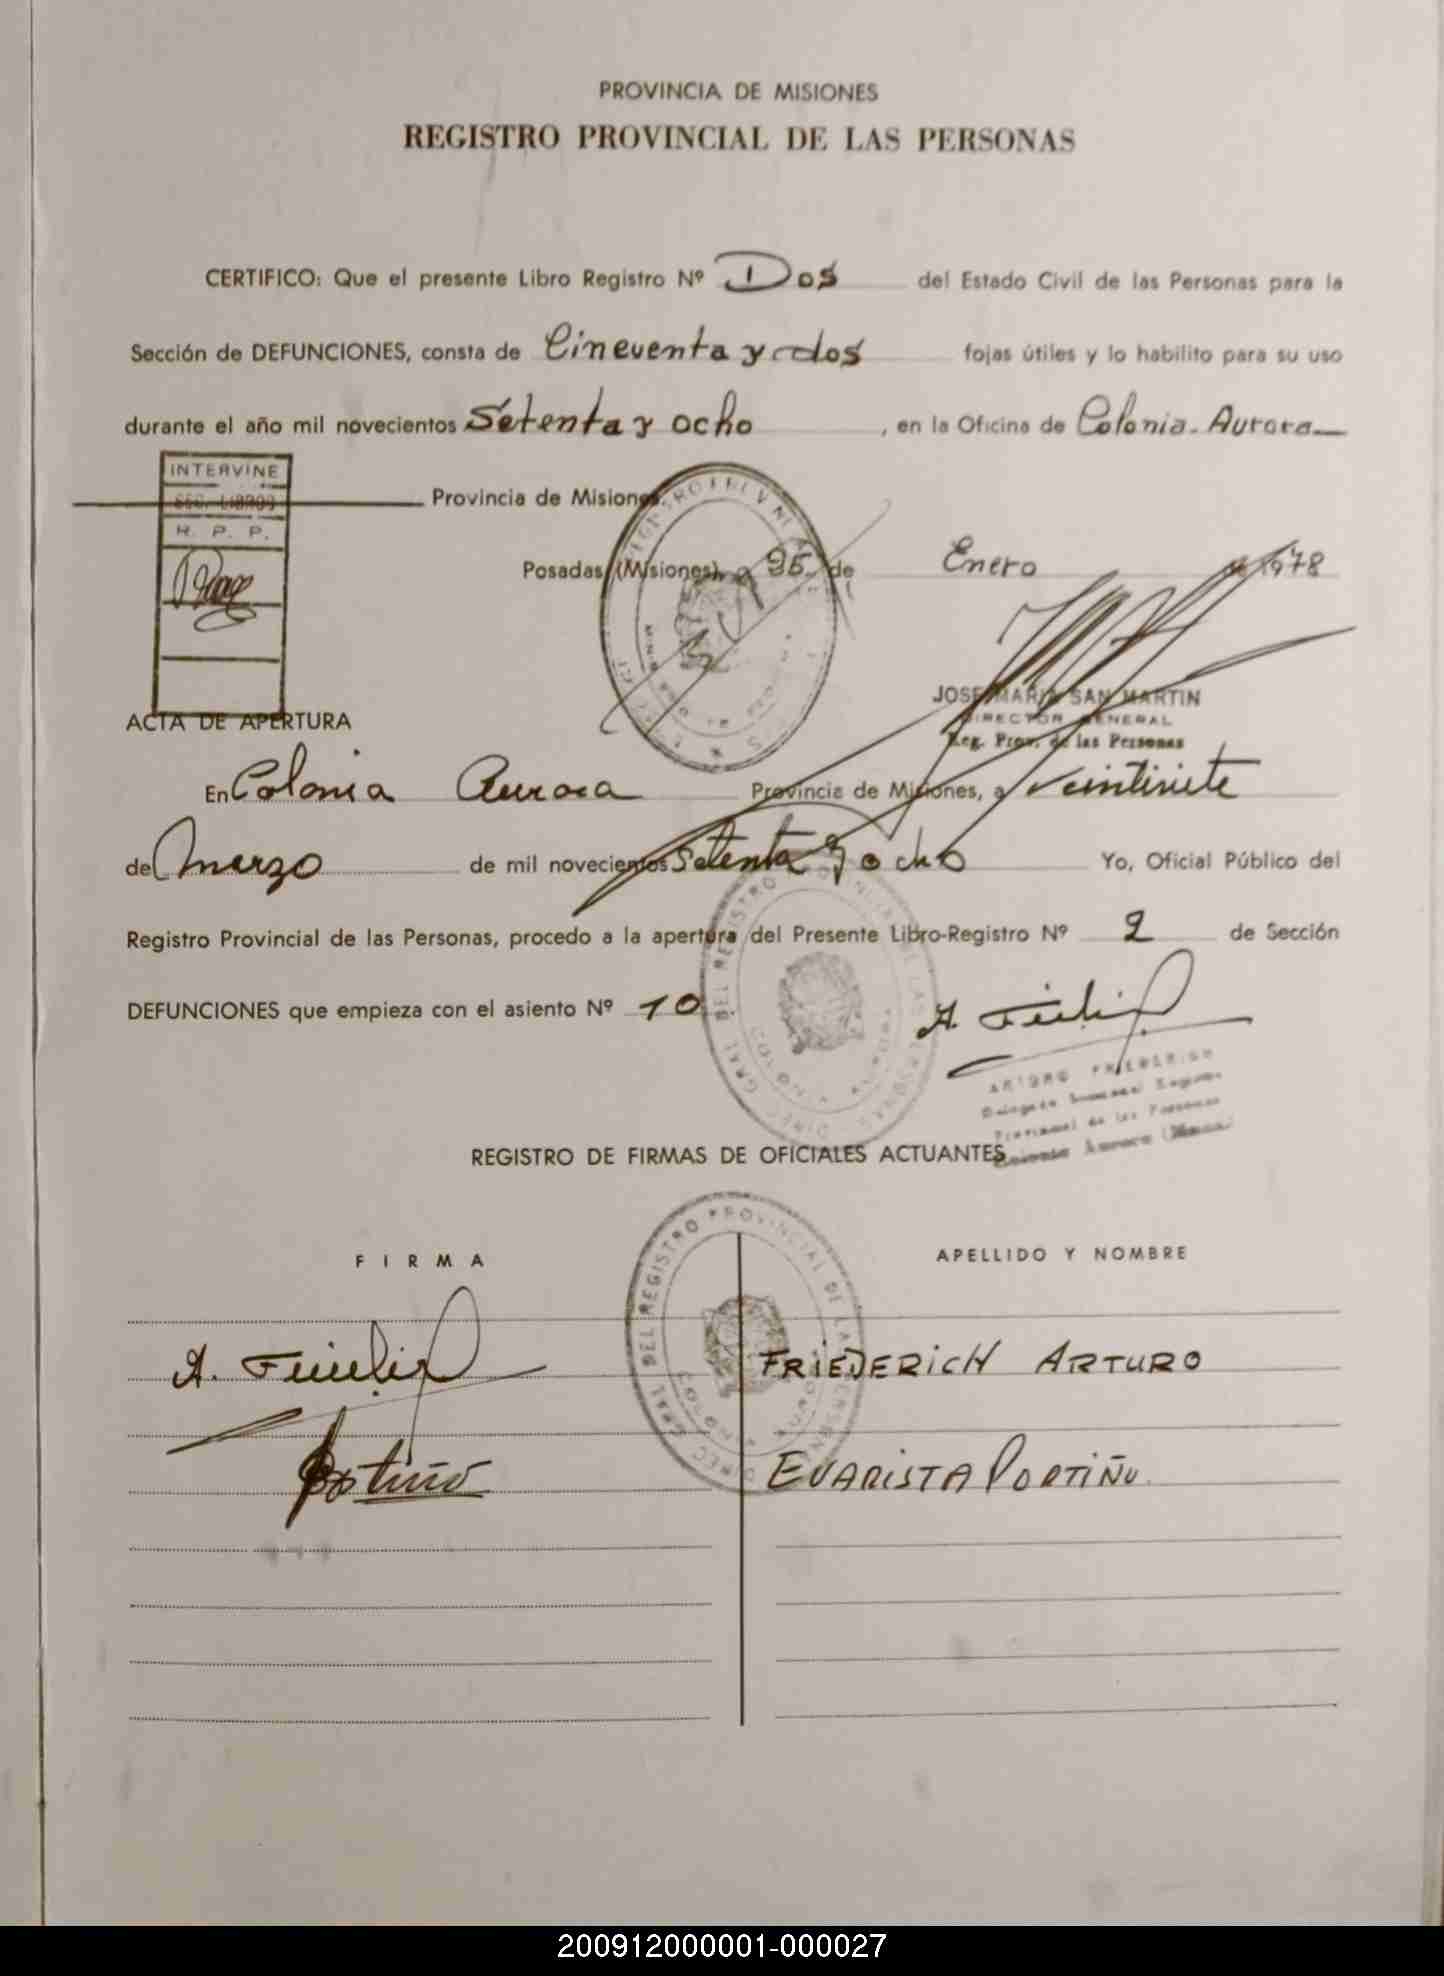 PROVINCIA DE MISIONES
REGISTRO PROVINCIAL DE LAS PERSONAS
CERTIFICO: Que el presente Libro Registro Nº Dos del Estado Civil de las Personas para la
Sección de DEFUNCIONES, consta de Cincuenta y dos fojas útiles y lo habilito para su uso
durante el año mil novecientos Setenta y ocho, en la Oficina de Colonia Aurora
INTERVINE
SEC. LIBROS
R. P. P.
Provincia de Misiones.
Posadas (Misiones), a de Enero de 1978
JOSE MARIA SAN MARTIN
DIRECTOR GENERAL
Reg. Prov. de las Personas
ACTA DE APERTURA
En Colonia Aurora Provincia de Misiones, a veintisiete
de Marzo de mil novecientos Setenta y ocho Yo, Oficial Público del
Registro Provincial de las Personas, procedo a la apertura del Presente Libro-Registro Nº 2 de Sección
DEFUNCIONES que empieza con el asiento Nº 10
DIREC. GRAL. DEL REGISTRO PROVINCIAL DE LAS PERSONAS
COLONIA AURORA
ARTURO FRIEDERICH
Provincial de las Personas
Colonia Aurora
REGISTRO DE FIRMAS DE OFICIALES ACTUANTES
FIRMA APELLIDO Y NOMBRE
DIREC. GRAL. DEL REGISTRO PROVINCIAL DE LAS PERSONAS
COLONIA AURORA
FRIEDERICH ARTURO
Portiño EVARISTA PORTIÑO.
200912000001-000027